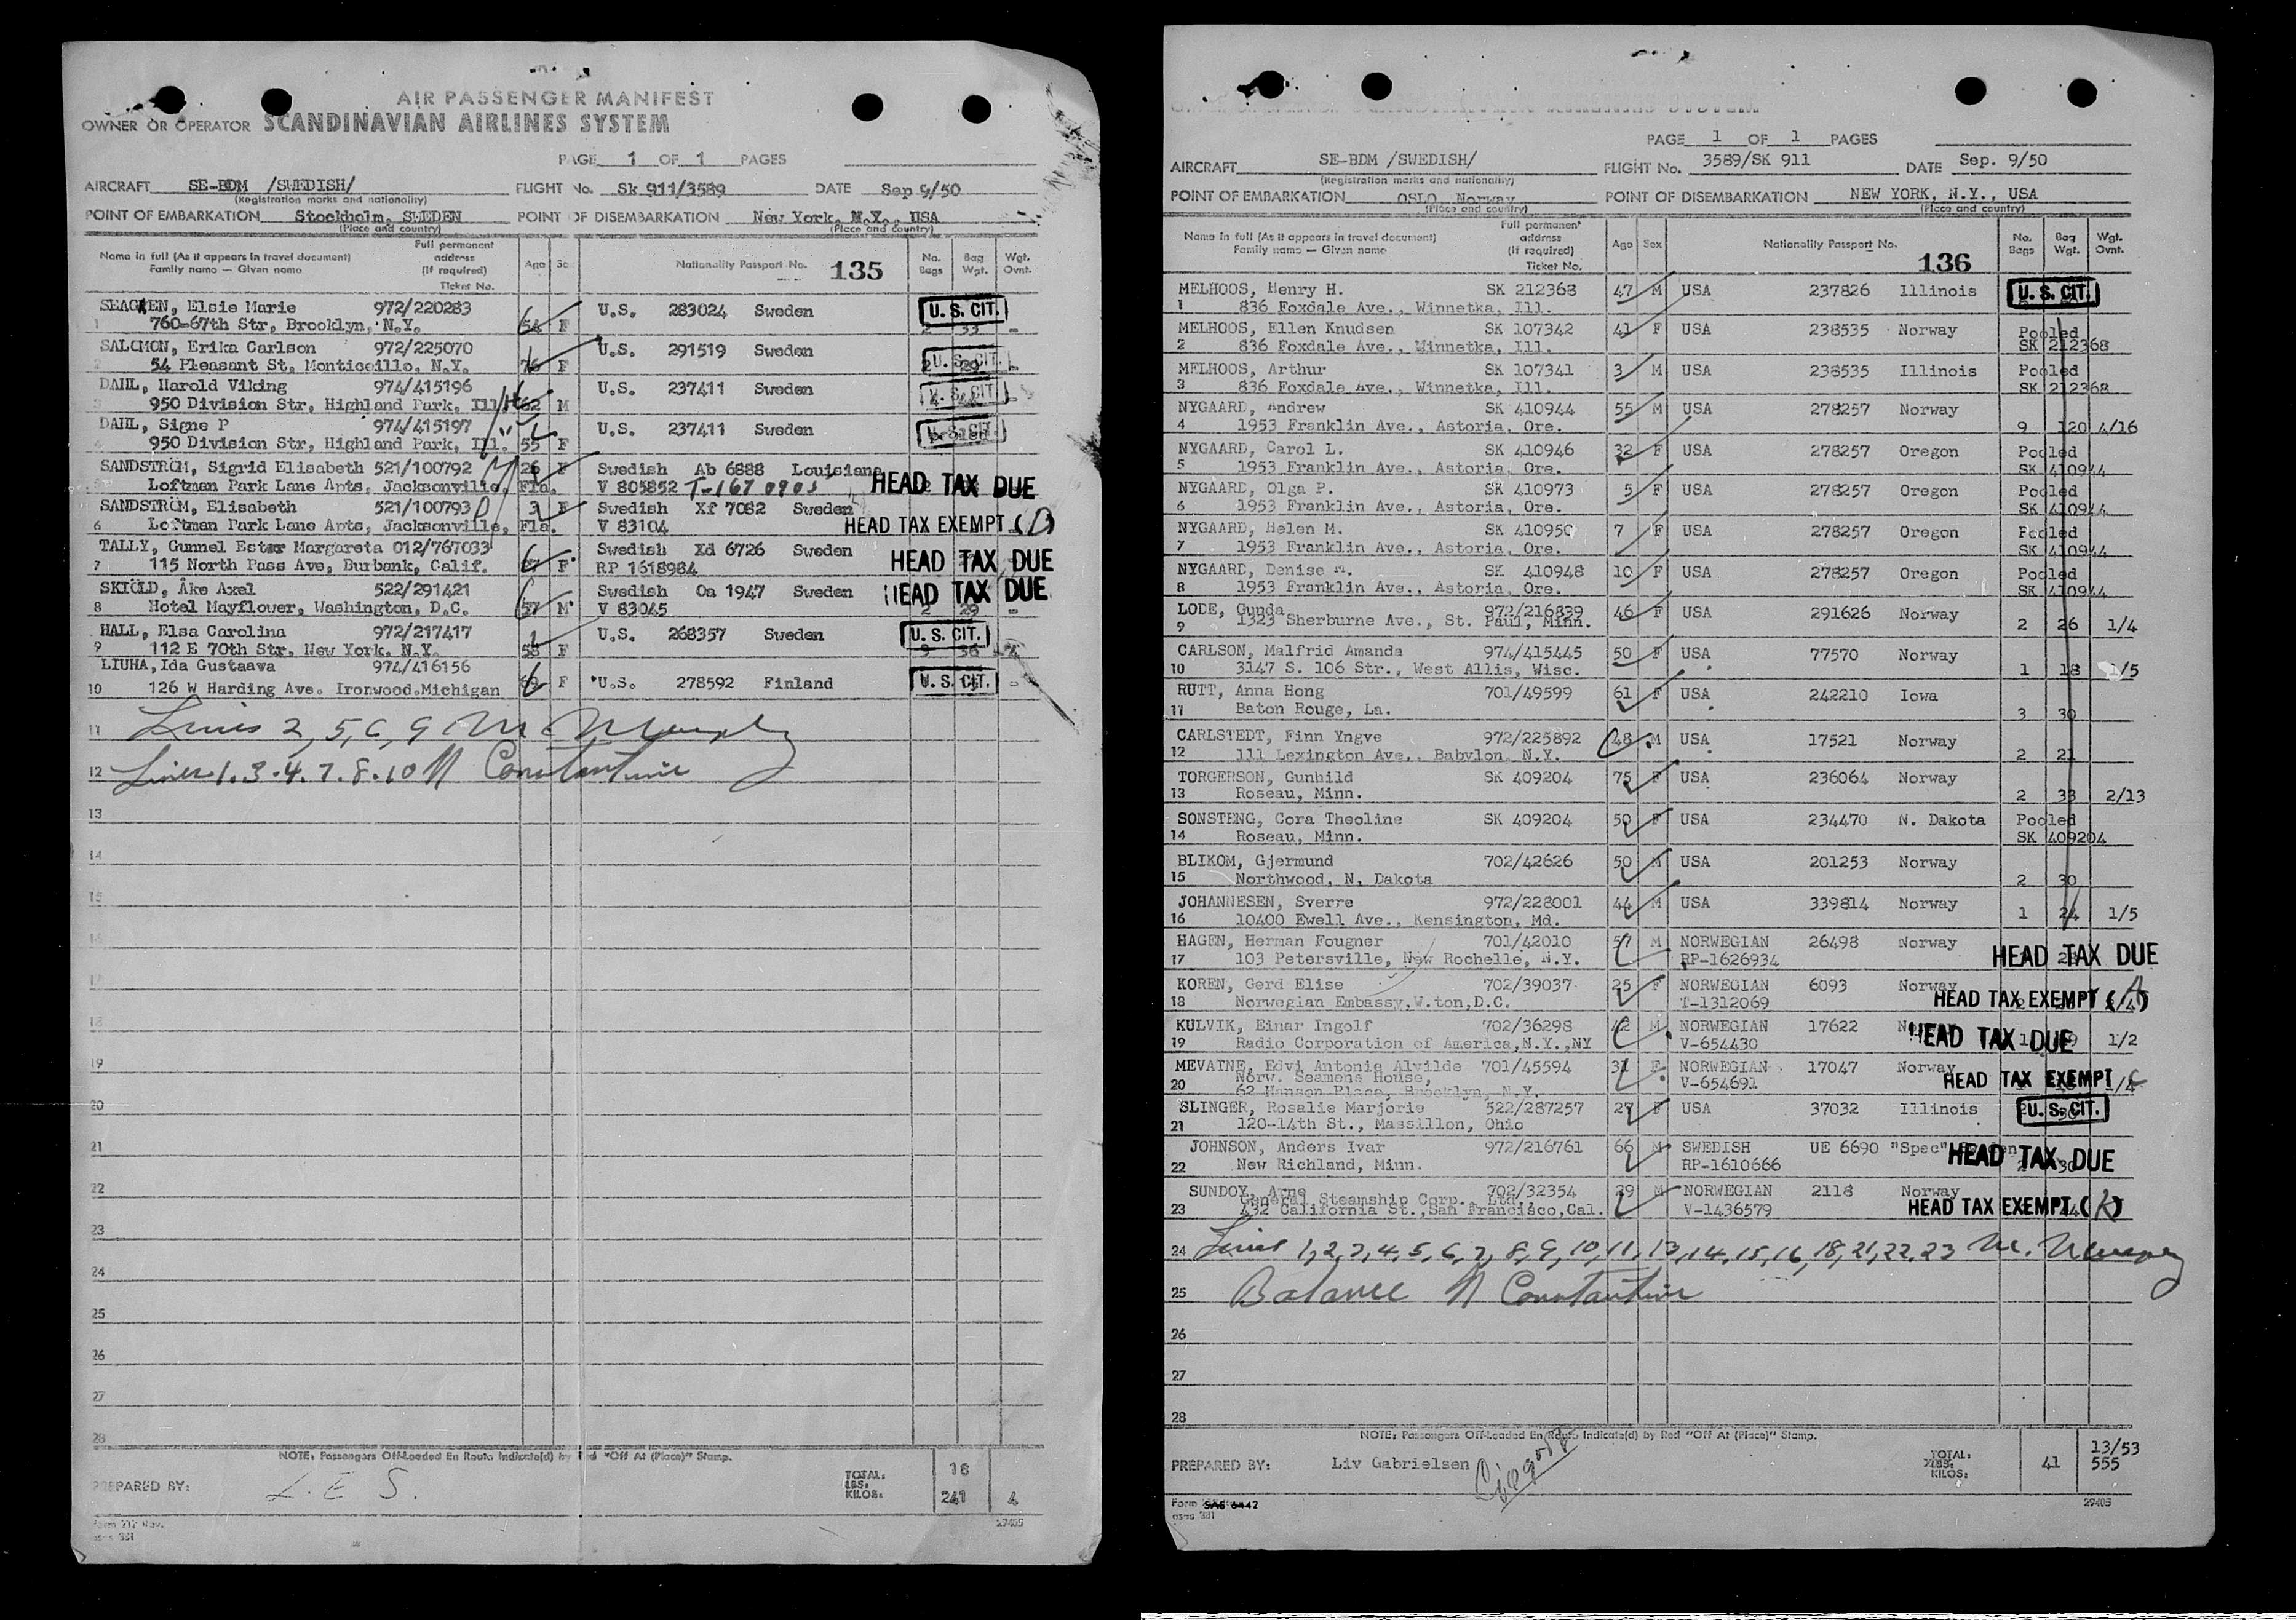 AIR PASSENGER MANIFEST
OWNER OR OPERATOR SCANDINAVIAN AIRLINES SYSTEM
PAGE 1 OF 1 PAGES
AIRCRAFT SE-BDM /SWEDISH/ FLIGHT No. Sk 911/3589 DATE Sep 9/50
(Registration marks and nationality)
POINT OF EMBARKATION Stockholm, SWEDEN POINT OF DISEMBARKATION New York, N.Y., USA
(Place and country) (Place and country)
Name in full (As it appears in travel document) Family name — Given name Full permanent address (If required) Ticket No. Age Nationality Passport No. 135 No. Bags Bag Wgt. Wgt. Ovnt.
SEAGREN, Elsie Marie 972/220283 U.S. 283024 Sweden U. S. CIT.
1 760-67th Str, Brooklyn, N.Y. 54 F 33 -
SALOMON, Erika Carlson 972/225070 U.S. 291519 Sweden U. S. CIT.
2 54 Pleasant St, Monticello, N.Y. 76 F 2 29 -
DAHL, Harold Viking 974/415196 U.S. 237411 Sweden U. S. CIT.
3 950 Division Str, Highland Park, Ill. 62 M
DAHL, Signe P 974/415197 U.S. 237411 Sweden U. S. CIT.
4 950 Division Str, Highland Park, Ill. 55 F
SANDSTRÖM, Sigrid Elisabeth 521/100792 26 F Swedish Ab 6888 Louisiana
5 Loftman Park Lane Apts, Jacksonville, Fla. V 805852 T-167 0905 HEAD TAX DUE
SANDSTRÖM, Elisabeth 521/100793 3 F Swedish Xf 7082 Sweden
6 Loftman Park Lane Apts, Jacksonville, Fla. V 83104 HEAD TAX EXEMPT (D)
TALLY, Gunnel Ester Margareta 012/767033 Swedish Xd 6726 Sweden
7 115 North Pass Ave, Burbank, Calif. F RP 1618984 HEAD TAX DUE
SKIÖLD, Åke Axel 522/291421 Swedish Oa 1947 Sweden HEAD TAX DUE
8 Hotel Mayflower, Washington, D.C. 57 M V 83045 2 29 -
HALL, Elsa Carolina 972/217417 U.S. 268357 Sweden U. S. CIT.
9 112 E 70th Str, New York, N.Y. 58 F 3 36 4
LIUHA, Ida Gustaava 974/416156
10 126 W Harding Ave. Ironwood.Michigan F U.S. 278592 Finland U. S. CIT. -
11 Lines 2, 5, 6, 9 M Murphy
12 Lines 1.3.4.7.8.10 N Constantine
13
14
15
16
17
18
19
20
21
22
23
24
25
26
27
28
NOTE: Passengers Off-Loaded En Route Indicate(d) by Red "Off At (Place)" Stamp.
PREPARED BY: L. E S. TOTAL: 18
LBS:
KILOS: 241 4
27405
PAGE 1 OF 1 PAGES
AIRCRAFT SE-BDM /SWEDISH/ FLIGHT No. 3589/SK 911 DATE Sep. 9/50
(Registration marks and nationality)
POINT OF EMBARKATION OSLO, Norway POINT OF DISEMBARKATION NEW YORK, N.Y., USA
(Place and country) (Place and country)
Name in full (As it appears in travel document) Family name — Given name Full permanent address (If required) Ticket No. Age Sex Nationality Passport No. 136 No. Bags Bag Wgt. Wgt. Ovnt.
MELHOOS, Henry H. SK 212368 47 M USA 237826 Illinois U. S. CIT.
1 836 Foxdale Ave., Winnetka, Ill.
MELHOOS, Ellen Knudsen SK 107342 41 F USA 238535 Norway Pooled
2 836 Foxdale Ave., Winnetka, Ill. SK 212368
MELHOOS, Arthur SK 107341 3 M USA 238535 Illinois Pooled
3 836 Foxdale Ave., Winnetka, Ill. SK 212368
NYGAARD, Andrew SK 410944 55 M USA 278257 Norway
4 1953 Franklin Ave., Astoria, Ore. 9 120 4/16
NYGAARD, Carol L. SK 410946 32 F USA 278257 Oregon Pooled
5 1953 Franklin Ave., Astoria, Ore. SK 410944
NYGAARD, Olga P. SK 410973 5 F USA 278257 Oregon Pooled
6 1953 Franklin Ave., Astoria, Ore. SK 410944
NYGAARD, Helen M. SK 410950 7 F USA 278257 Oregon Pooled
7 1953 Franklin Ave., Astoria, Ore. SK 410944
NYGAARD, Denise M. SK 410948 10 F USA 278257 Oregon Pooled
8 1953 Franklin Ave., Astoria, Ore. SK 410944
LODE, Gunda 972/216839 46 F USA 291626 Norway
9 1323 Sherburne Ave., St. Paul, Minn. 2 26 1/4
CARLSON, Malfrid Amanda 974/415445 50 F USA 77570 Norway
10 3147 S. 106 Str., West Allis, Wisc. 1 18 1/5
RUTT, Anna Hong 701/49599 61 F USA 242210 Iowa
11 Baton Rouge, La. 3 30
CARLSTEDT, Finn Yngve 972/225892 48 M USA 17521 Norway
12 111 Lexington Ave., Babylon, N.Y. 2 21
TORGERSON, Gunhild SK 409204 75 F USA 236064 Norway
13 Roseau, Minn. 2 33 2/13
SONSTENG, Cora Theoline SK 409204 50 F USA 234470 N. Dakota Pooled
14 Roseau, Minn. SK 409204
BLIKOM, Gjermund 702/42626 50 M USA 201253 Norway
15 Northwood, N. Dakota 2 30
JOHANNESEN, Sverre 972/228001 44 M USA 339814 Norway
16 10400 Ewell Ave., Kensington, Md. 1 24 1/5
HAGEN, Herman Fougner 701/42010 57 M NORWEGIAN 26498 Norway
17 103 Petersville, New Rochelle, N.Y. RP-1626934 HEAD TAX DUE
KOREN, Gerd Elise 702/39037 25 F NORWEGIAN 6093 Norway
18 Norwegian Embassy, W.ton, D.C. T-1312069 HEAD TAX EXEMPT (A)
KULVIK, Einar Ingolf 702/36298 42 M NORWEGIAN 17622
19 Radio Corporation of America, N.Y.,NY V-654430 HEAD TAX DUE 1/2
MEVATNE, Edvi Antonie Alvilde 701/45594 31 F NORWEGIAN 17047 Norway
20 Norw. Seamens House, V-654691 HEAD TAX EXEMPT
62 Hanson Place, Brooklyn, N.Y.
SLINGER, Rosalie Marjorie 522/287257 27 F USA 37032 Illinois U. S. CIT.
21 120-14th St., Massillon, Ohio
JOHNSON, Anders Ivar 972/216761 66 M SWEDISH UE 6690 "Spec"
22 New Richland, Minn. RP-1610666 HEAD TAX DUE
SUNDOY, Arne 702/32354 29 M NORWEGIAN 2118 Norway
General Steamship Corp., Ltd.
23 432 California St.,San Francisco,Cal. V-1436579 HEAD TAX EXEMPT (K)
24 Lines 1,2,3,4,5,6,7,8,9,10,11,13,14,15,16,18,21,22,23 M. Murphy
25 Balance N Constantine
26
27
28
NOTE: Passengers Off-Loaded En Route Indicate(d) by Red "Off At (Place)" Stamp.
PREPARED BY: Liv Gabrielsen TOTAL: 41 13/53
LBS: 555
KILOS:
Form SAS 6442 27405